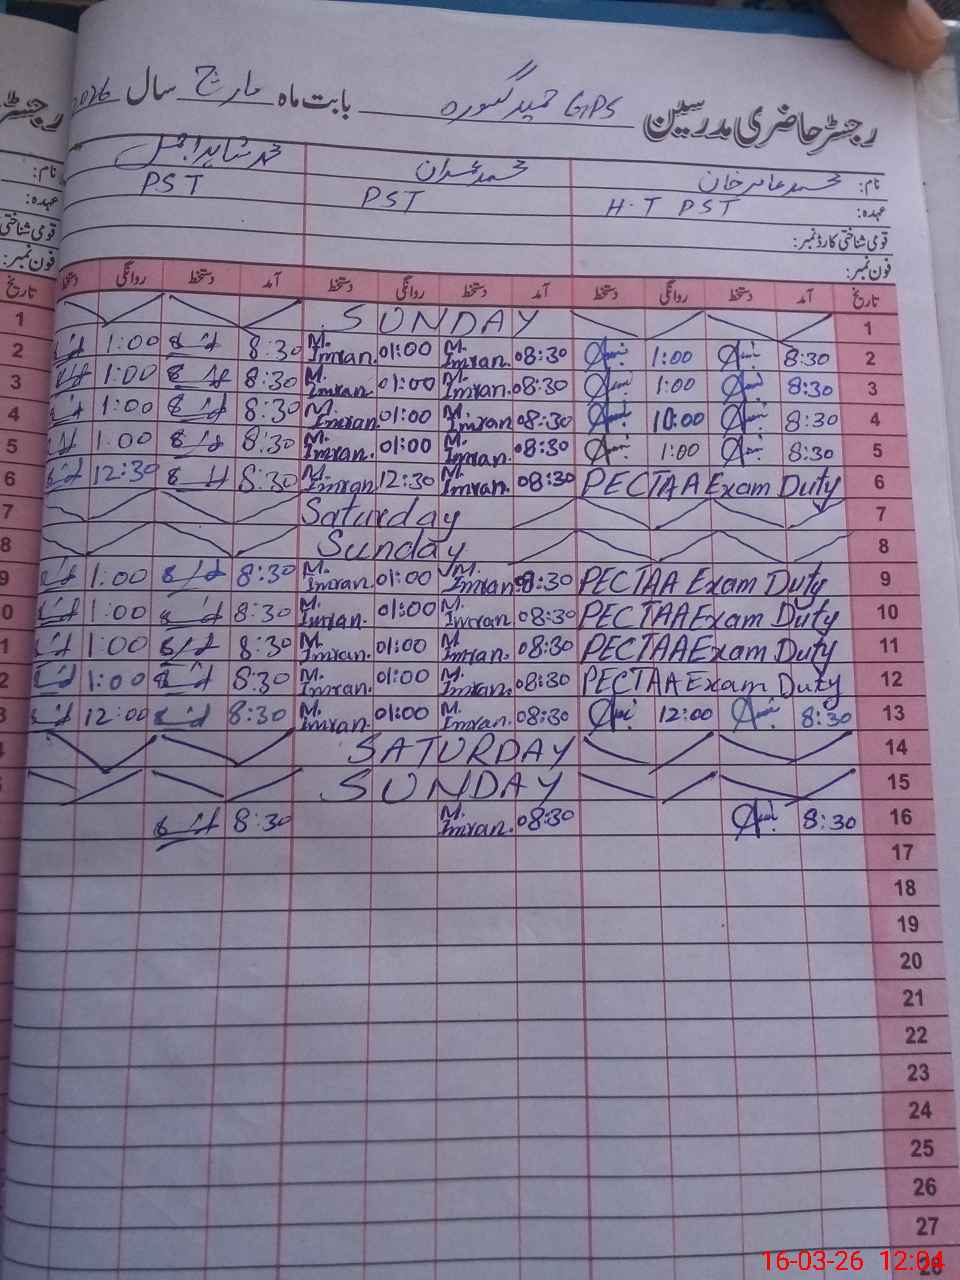 رجسٹر حاضری مدرسین GPS حمید گسورہ بابت ماہ مارچ سال 2026
نام: محمد عامر خان محمد عمران محمد شاہد اجمل
عہدہ: H.T PST PST PST
قومی شناختی کارڈ نمبر:
فون نمبر:
تاریخ آمد دستخط روانگی دستخط آمد دستخط روانگی دستخط آمد دستخط روانگی دستخط
1 SUNDAY 1
2 1:00 8:30 M. Imran. 01:00 M. Imran. 08:30 1:00 8:30 2
3 1:00 8:30 M. Imran. 01:00 M. Imran. 08:30 1:00 8:30 3
4 1:00 8:30 M. Imran. 01:00 M. Imran. 08:30 10:00 8:30 4
5 1:00 8:30 M. Imran. 01:00 M. Imran. 08:30 1:00 8:30 5
6 12:30 8:30 M. Imran. 12:30 M. Imran. 08:30 PECTAA Exam Duty 6
7 Saturday 7
8 Sunday 8
9 1:00 8:30 M. Imran. 01:00 M. Imran. 08:30 PECTAA Exam Duty 9
0 1:00 8:30 M. Imran. 01:00 M. Imran. 08:30 PECTAA Exam Duty 10
1 1:00 8:30 M. Imran. 01:00 M. Imran. 08:30 PECTAA Exam Duty 11
2 1:00 8:30 M. Imran. 01:00 M. Imran. 08:30 PECTAA Exam Duty 12
3 12:00 8:30 M. Imran. 01:00 M. Imran. 08:30 12:00 8:30 13
SATURDAY 14
SUNDAY 15
8:30 M. Imran. 08:30 8:30 16
17
18
19
20
21
22
23
24
25
26
27
28
16-03-26 12:04